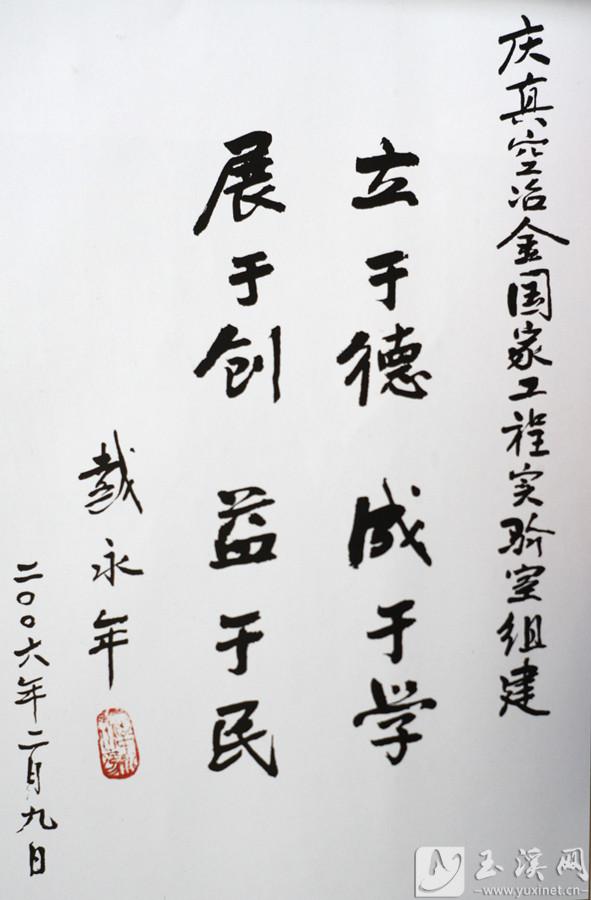 庆真空冶金国家工程实验室组建
立于德 成于学
展于创 益于民
戴永年
二〇〇六年二月九日
玉溪网
www.yuxinet.cn